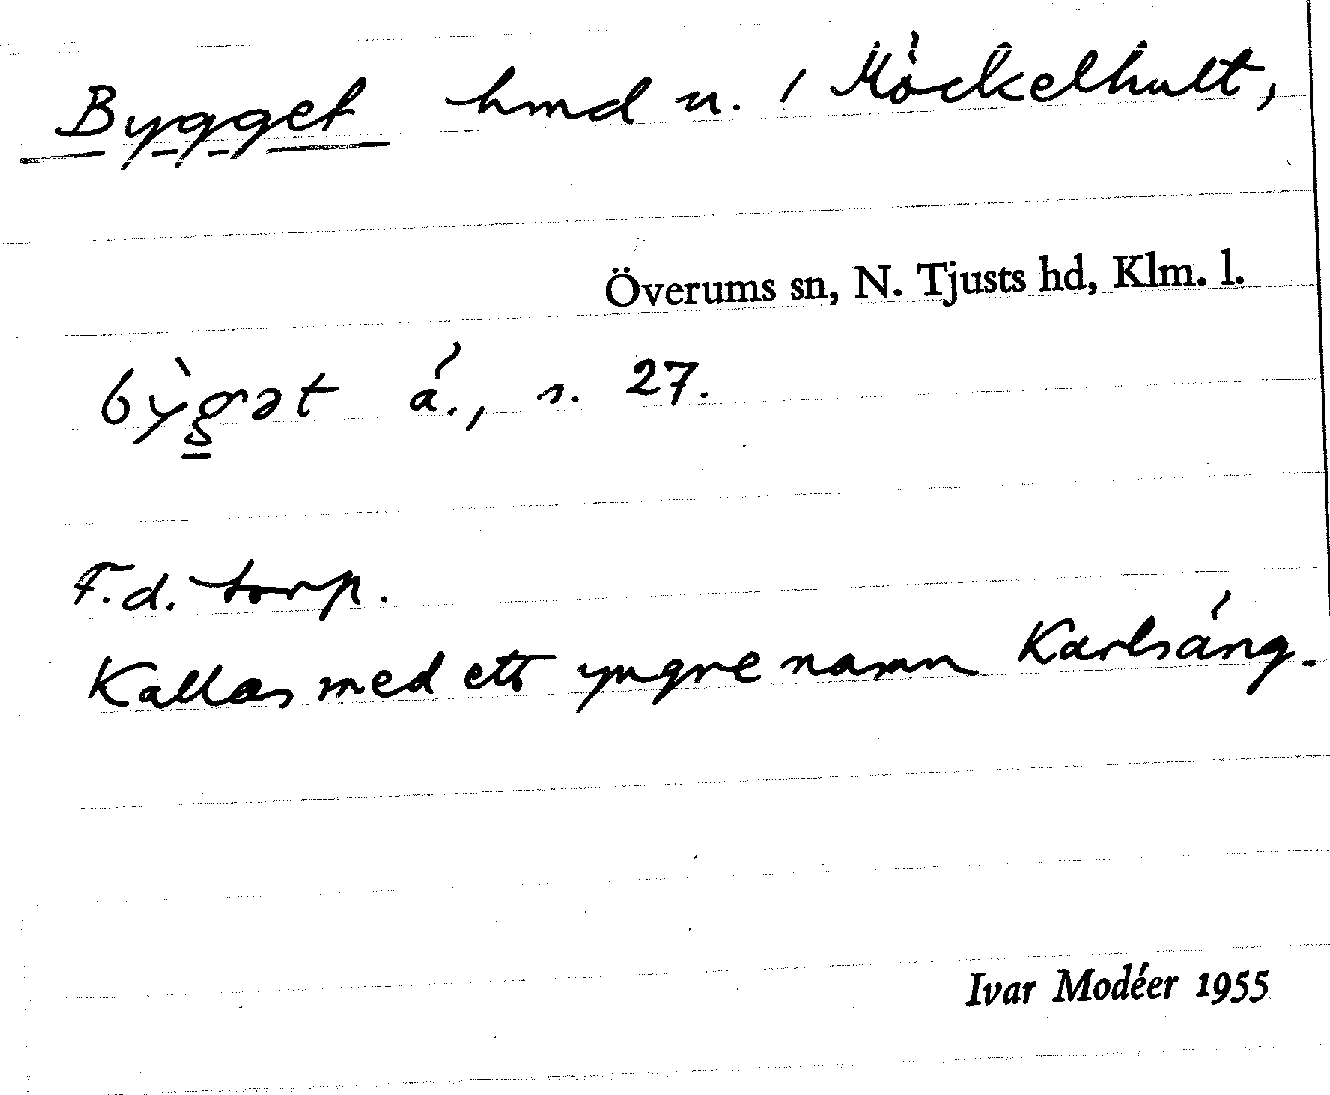 Bygget hmd u. / Möckelhult,
Överums sn, N. Tjusts hd, Klm. l.
bỳgət á., s. 27.
F.d. torp.
Kallas med ett yngre namn Karlsäng.
Ivar Modéer 1955